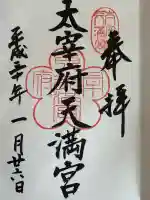 奉拝
太宰府天満宮
平成三十年一月廿六日